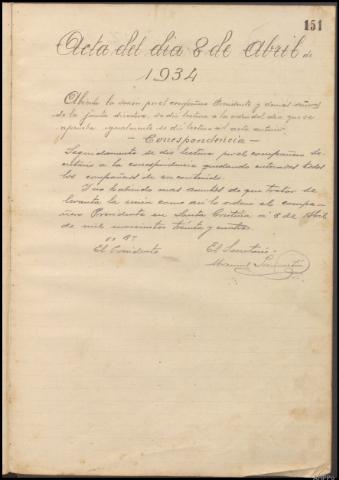 151
Acta del dia 8 de Abril de
1934
Abierta la sesion por el compañero Presidente y demas señores
de la junta directiva, se dio lectura a la orden del dia que se
aprueba igualmente se dio lectura al acta anterior.
— Correspondencia —
Seguidamente se dio lectura por el compañero se-
cretario a la correspondencia quedando enterados todos
los compañeros de su contenido.
Y no habiendo mas asuntos de que tratar se
levanta la sesion como asi lo ordena el compa-
ñero Presidente en Santa Cristina a 8 de Abril
de mil novecientos treinta y cuatro.
Vº Bº
El Presidente El Secretario
Manuel